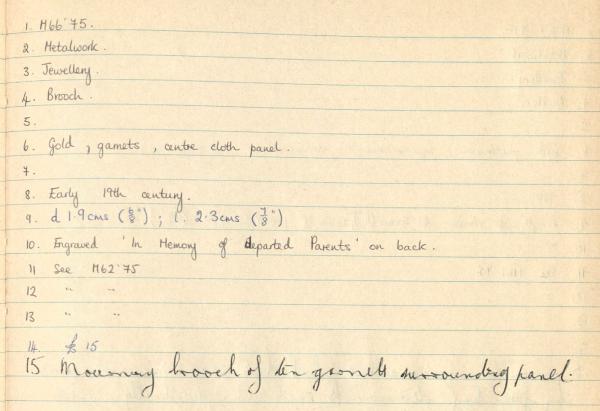 1. M66'75.
2. Metalwork.
3. Jewellery.
4. Brooch.
5.
6. Gold, garnets, centre cloth panel.
7.
8. Early 19th century.
9. d 1.9cms (6/8"); l. 2.3cms (7/8")
10. Engraved 'In Memory of departed Parents' on back.
11 See M62'75
12 " "
13 " "
14. 15
15 Mourning brooch of ten garnets surrounding panel.